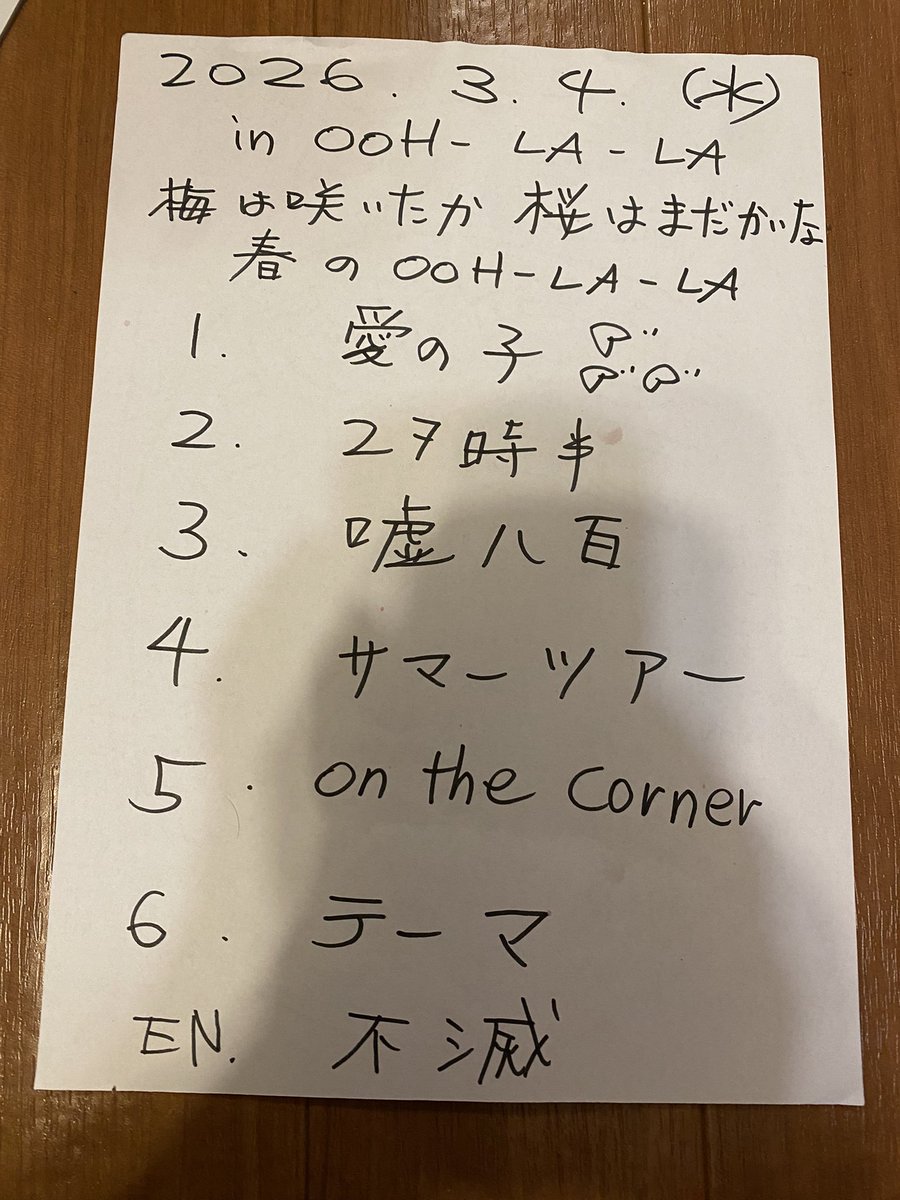 2026.3.4.(水)
in OOH-LA-LA
梅は咲いたか 桜はまだかいな
春のOOH-LA-LA
1. 愛の子
2. 27時半
3. 嘘八百
4. サマーツアー
5. on the corner
6. テーマ
EN. 不滅